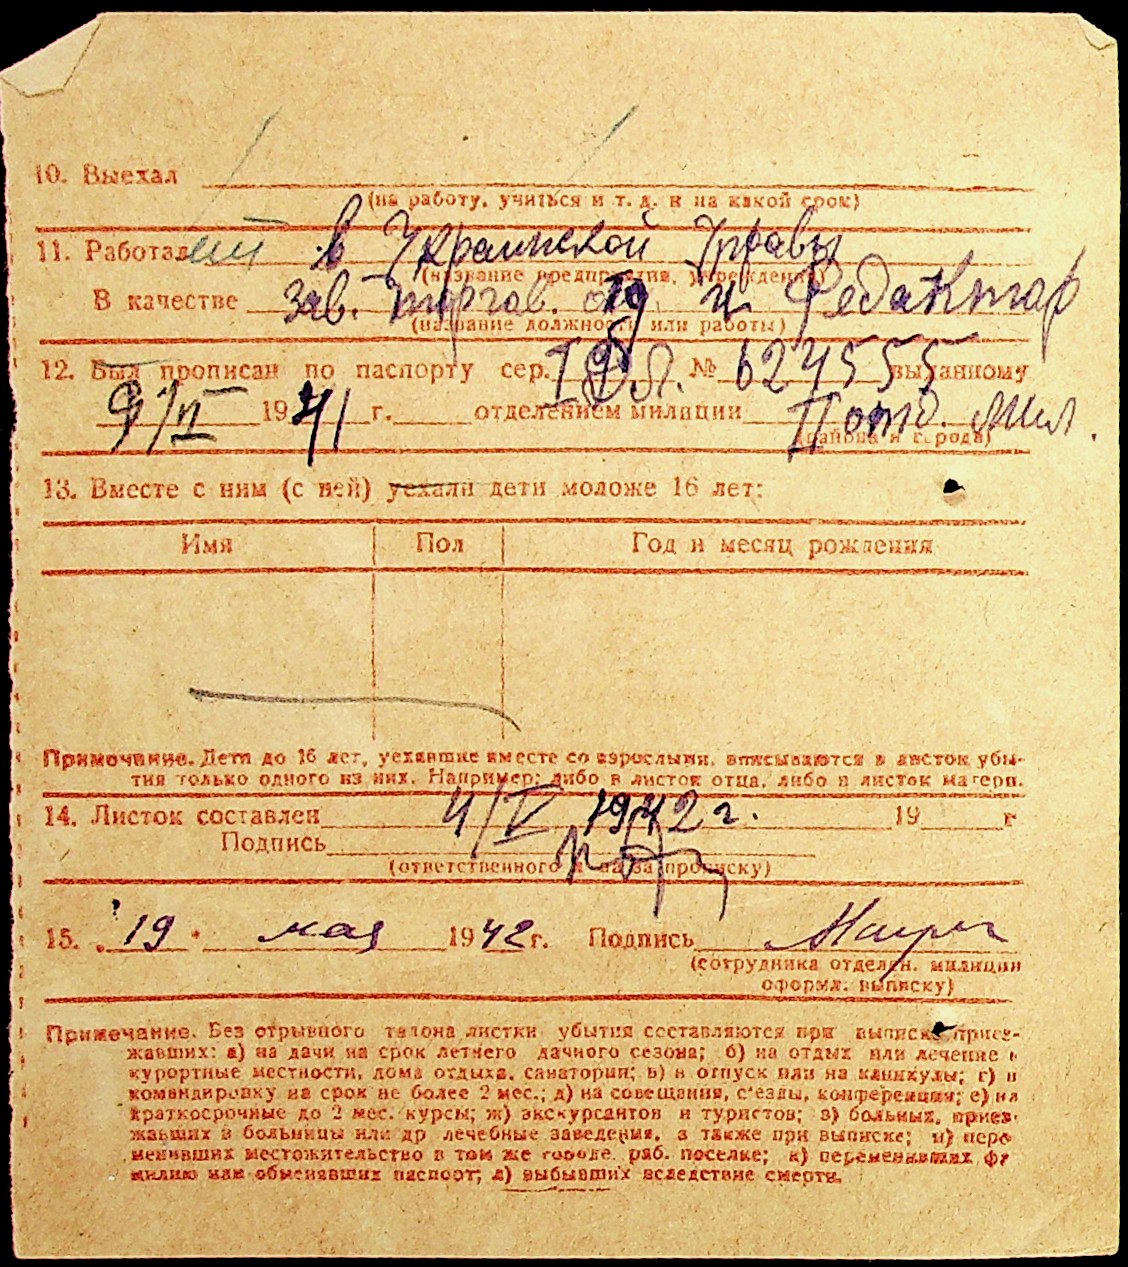 10. Выехал
(на работу, учиться и т. д. и на какой срок)
11. Работает в Украинской Управы
(название предприятия, учреждения)
В качестве зав. торгав. отд и Редактар
(название должности или работы)
12. Был прописан по паспорту сер. № 624555 выданному
9/II 1941 г. отделением милиции П отд. мил.
(района и города)
13. Вместе с ним (с ней) уехали дети моложе 16 лет:
Имя Пол Год и месяц рождения
Примечание. Дети до 16 лет, уехавшие вместе со взрослыми, вписываются в листок убы-
тия только одного из них. Например: либо в листок отца, либо в листок матери.
14. Листок составлен 4/V 1942 г. 19 г
Подпись
(ответственного за прописку)
15. 19 мая 1942 г. Подпись
(сотрудника отделен. милиции
оформ. выписку)
Примечание. Без отрывного талона листки убытия составляются при выписке приез-
жавших: а) на дачи на срок летнего дачного сезона; б) на отдых или лечение в
курортные местности, дома отдыха, санатории; в) в отпуск или на каникулы; г) в
командировку на срок не более 2 мес.; д) на совещания, с'езды, конференции; е) на
краткосрочные до 2 мес. курсы; ж) экскурсантов и туристов; з) больных, приез-
жавших в больницы или др лечебные заведения, а также при выписке; и) пере
менивших местожительство в том же городе, раб. поселке; к) переменивших фа
милию или обменявших паспорт; л) выбывших вследствие смерти.